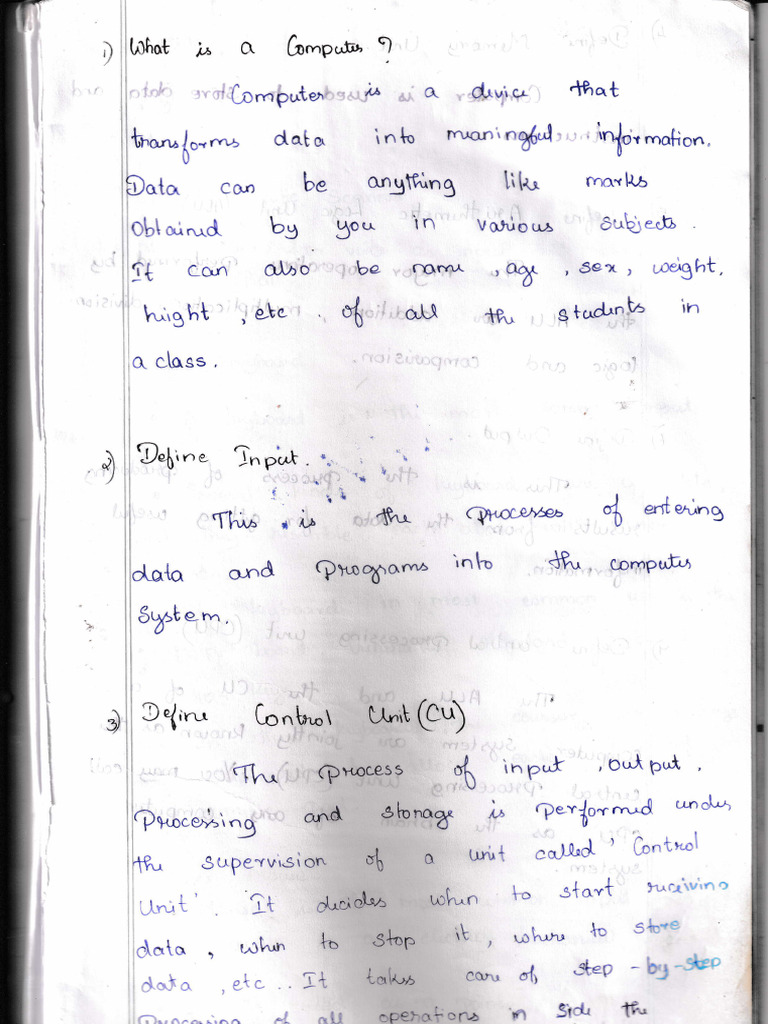 1) What is a Computer?
Computer is a device that
transforms data into meaningful information.
Data can be anything like marks
Obtained by you in various subjects.
It can also be name, age, sex, weight,
height, etc. of all the students in
a class.
2) Define Input.
This is the Processes of entering
data and Programs into the computer
System.
3) Define Control Unit (CU)
The Process of input, output,
Processing and storage is performed under
the supervision of a unit called 'Control
Unit'. It decides when to start receiving
data, when to stop it, where to store
data, etc.. It takes care of step-by-step
Processing of all operations in side the